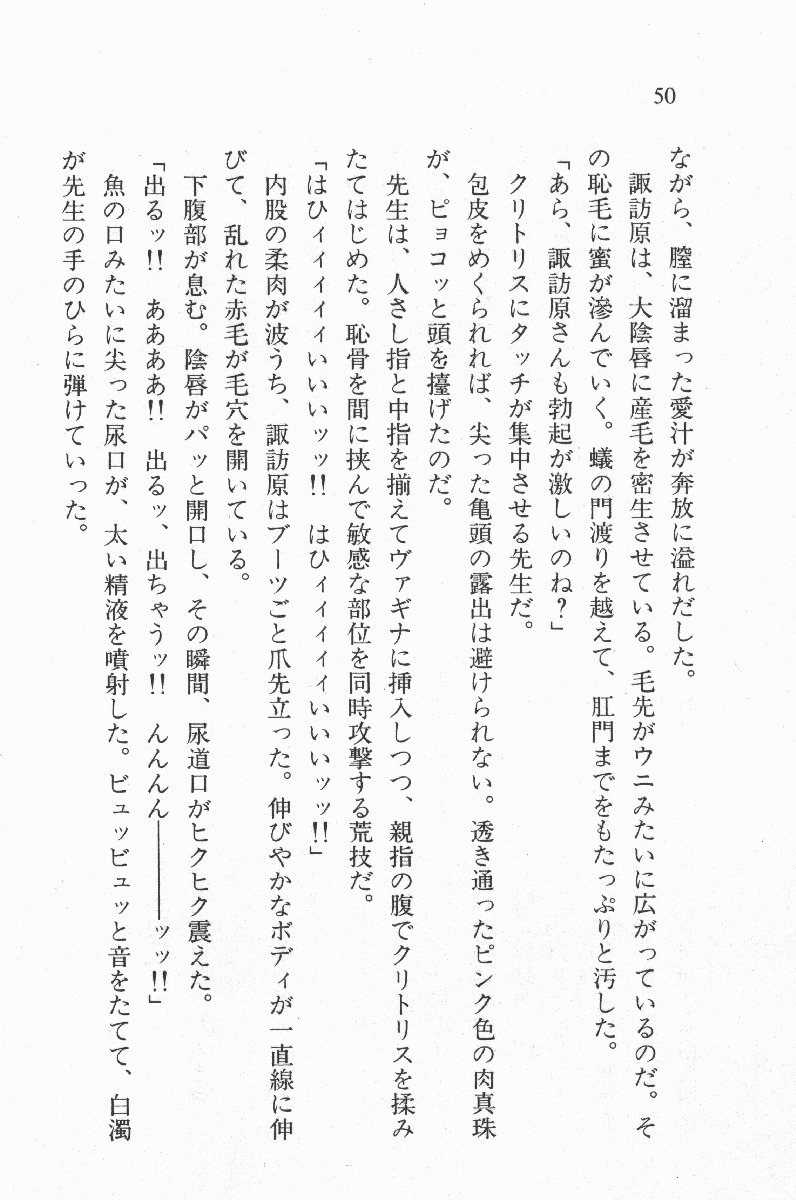 50
ながら、膣に溜まった愛汁が奔放に溢れだした。
諏訪原は、大陰唇に産毛を密生させている。毛先がウニみたいに広がっているのだ。そ
の恥毛に蜜が滲んでいく。蟻の門渡りを越えて、肛門までをもたっぷりと汚した。
「あら、諏訪原さんも勃起が激しいのね？」
クリトリスにタッチが集中させる先生だ。
包皮をめくられれば、尖った亀頭の露出は避けられない。透き通ったピンク色の肉真珠
が、ピョコッと頭を擡げたのだ。
先生は、人さし指と中指を揃えてヴァギナに挿入しつつ、親指の腹でクリトリスを揉み
たてはじめた。恥骨を間に挟んで敏感な部位を同時攻撃する荒技だ。
「はひィィィィいいいッッ!!　はひィィィィいいいッッ!!」
内股の柔肉が波うち、諏訪原はブーツごと爪先立った。伸びやかなボディが一直線に伸
びて、乱れた赤毛が毛穴を開いている。
下腹部が息む。陰唇がパッと開口し、その瞬間、尿道口がヒクヒク震えた。
「出るッ!!　ああああ!!　出るッ、出ちゃうッ!!　んんんん――――ッッ!!」
魚の口みたいに尖った尿口が、太い精液を噴射した。ビュッビュッと音をたてて、白濁
が先生の手のひらに弾けていった。